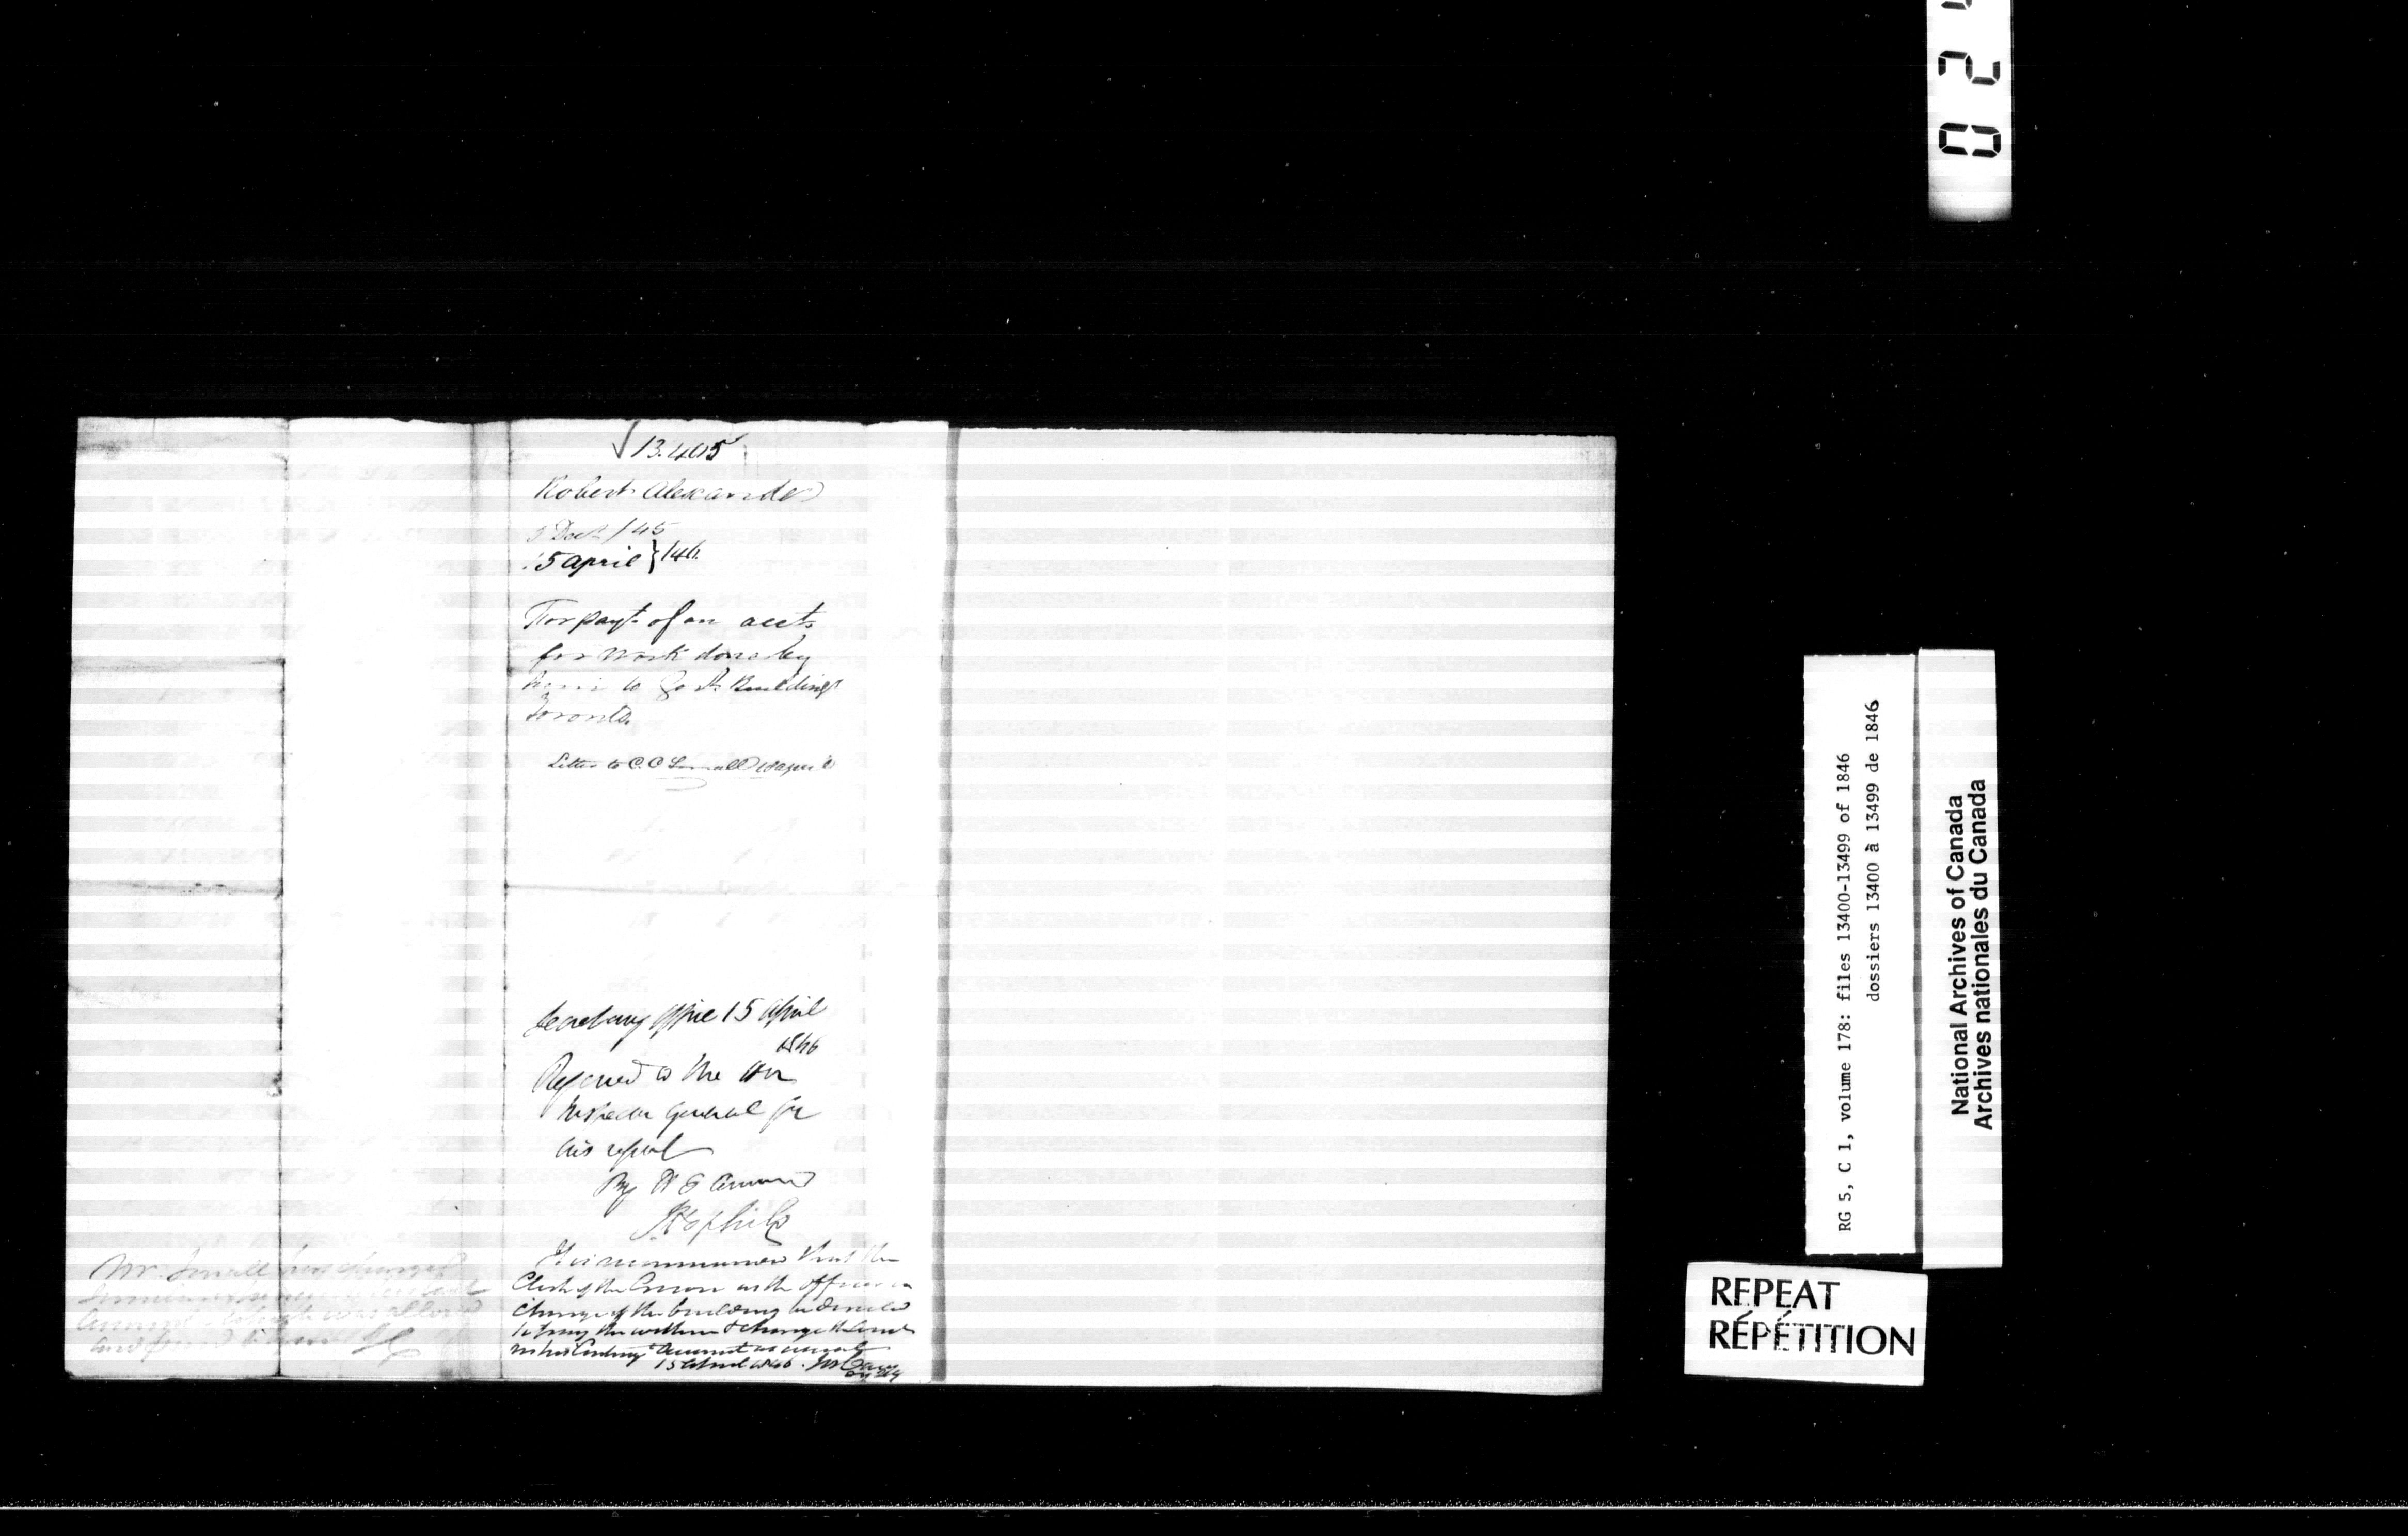 13.405
Robert Alexander
5 Decr /45
15 April } /46
For payt of an acct
for work done by
him to Govt Buildings
Toronto
Letter to C. C Small 18 April
Secretary Office 15 April
1846
Referred to the Hon
Inspector General for
his report
By Command
J Hopkirk
It is recommended that the
Clerk of the Crown as the Officer in
charge of the building be directed
to pay the within & charge the same
in his Contingt Account as usual
15 April 1846.
Mr. Small has charged
account - which was allowed
and paid
RG 5, C 1, volume 178: files 13400-13499 of 1846
dossiers 13400 à 13499 de 1846
National Archives of Canada
Archives nationales du Canada
REPEAT
RÉPÉTITION
0 2